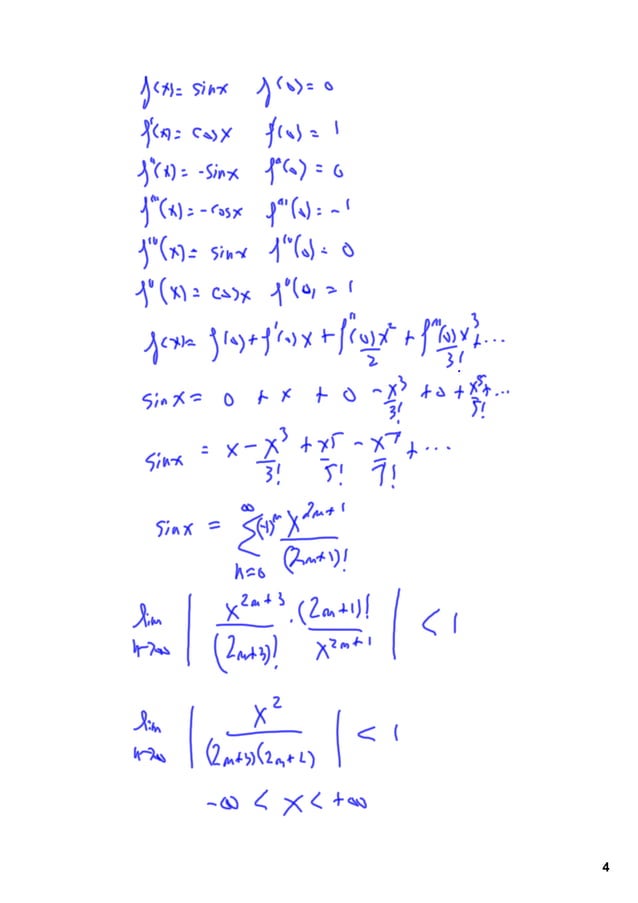 f(x) = sinx f(0) = 0
f'(x) = cosx f'(0) = 1
f''(x) = -sinx f''(0) = 0
f'''(x) = -cosx f'''(0) = -1
f^{iv}(x) = sinx f^{iv}(0) = 0
f^{v}(x) = cosx f^{v}(0) = 1
f(x) = f(0) + f'(0)x + f''(0)x^2/2 + f'''(0)x^3/3! + ...
sinx = 0 + x + 0 - x^3/3! + 0 + x^5/5! + ...
sinx = x - x^3/3! + x^5/5! - x^7/7! + ...
sinx = ∑_{n=0}^{∞} (-1)^n x^{2n+1}/(2n+1)!
lim_{n→∞} | x^{2n+3}/(2n+3)! · (2n+1)!/x^{2n+1} | < 1
lim_{n→∞} | x^2/((2n+3)(2n+2)) | < 1
-∞ < x < +∞
4